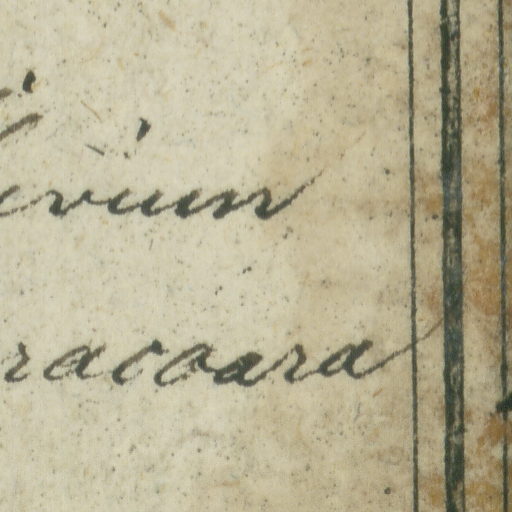 ivium
racoara